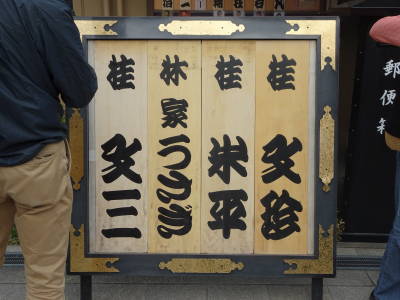 桂 文珍
桂 米平
林家うさぎ
桂 文三
郵便